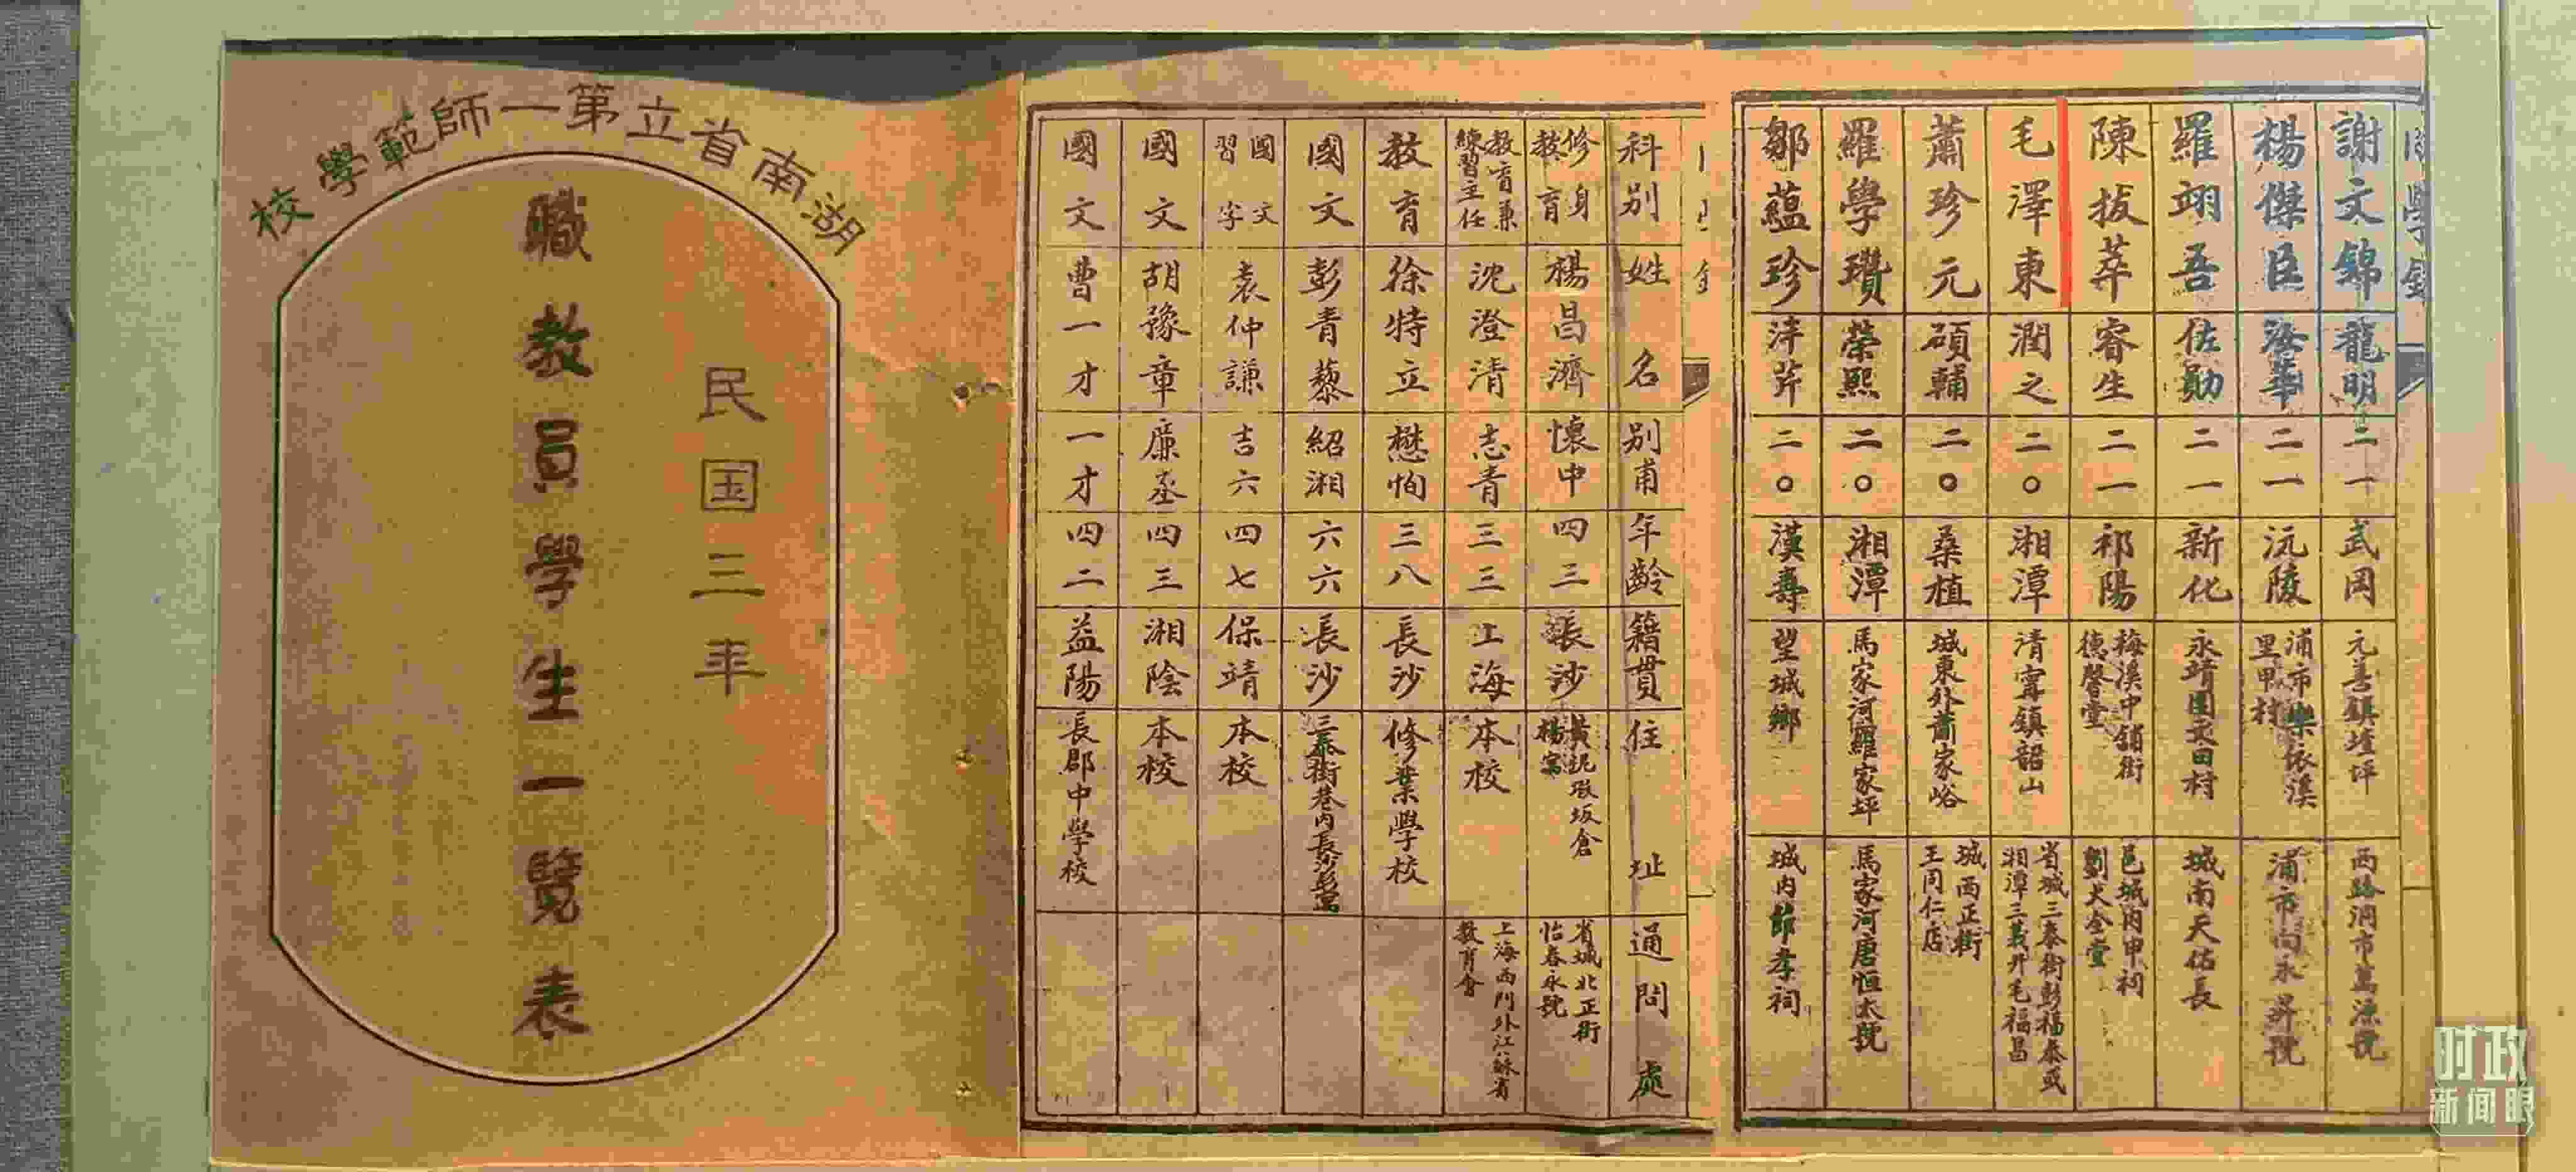 湖南省立第一師範學校
民国三年
職教員學生一覽表
科别 姓名 别甫 年齡 籍貫 住址 通問處
修身教育 楊昌濟 懷中 四三 長沙 黄坭塅坂倉楊寓 省城北正街怡春永號
教育兼練習主任 沈澄清 志青 三三 上海 本校 上海西門外江蘇省教育會
教育 徐特立 懋恂 三八 長沙 修業學校
國文 彭青藜 紹湘 六六 長沙 三泰街巷内長沙彭寓
國文習字 袁仲謙 吉六 四七 保靖 本校
國文 胡豫章 廉丞 四三 湘陰 本校
國文 曹一才 一才 四二 益陽 長郡中學校
同學録
謝文錦 龍明 二一 武岡 元善鎮 西路洞市萬源號
楊傑臣 二一 沅陵 浦市樂依溪里甲村 浦市向永昇號
羅翊吾 佐勛 二一 新化 永靖團 田村 城南天佑長
陳拔萃 睿生 二一 祁陽 梅溪中舖街德馨堂 邑城内申祠劉大全堂
毛澤東 潤之 二〇 湘潭 清寗鎮韶山 省城三泰街彭福泰或湘潭三義升毛福昌
蕭珍元 碩輔 二〇 桑植 城東外蕭家峪 城西正街王同仁店
羅學瓚 榮熙 二〇 湘潭 馬家河羅家坪 馬家河唐恒太號
鄒蘊珍 泮芹 二〇 漢壽 望城鄉 城内節孝祠
时政
新闻眼